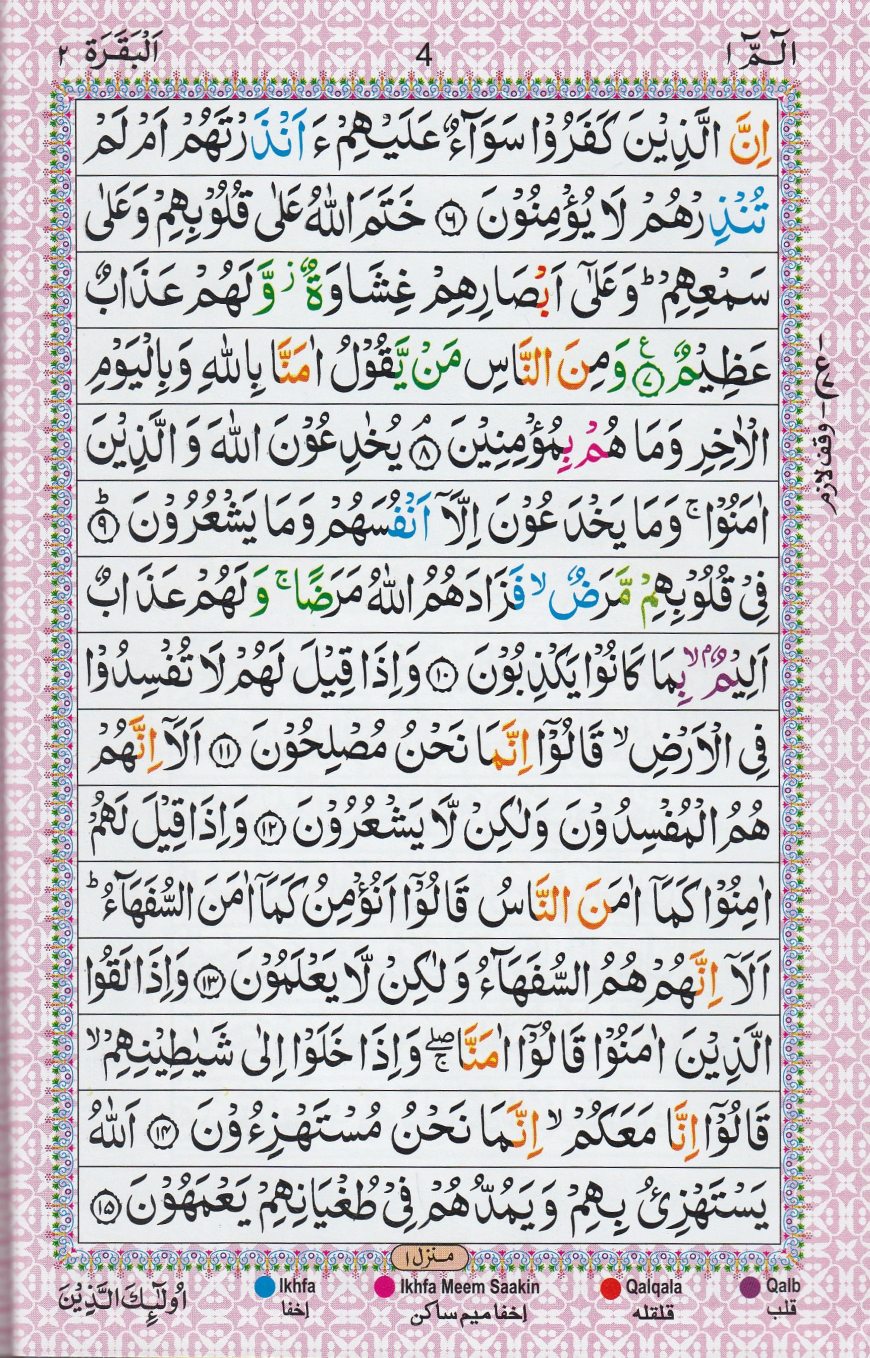 الٓـمّٓ ١ 4 اَلْبَقَرَة ٢
اِنَّ الَّذِيْنَ كَفَرُوْا سَوَآءٌ عَلَيْهِمْ ءَاَنْذَرْتَهُمْ اَمْ لَمْ
تُنْذِرْهُمْ لَا يُؤْمِنُوْنَ ۝٦ خَتَمَ اللّٰهُ عَلٰى قُلُوْبِهِمْ وَعَلٰى
سَمْعِهِمْ ؕ وَعَلٰٓى اَبْصَارِهِمْ غِشَاوَةٌ ز وَّلَهُمْ عَذَابٌ
عَظِيْمٌ ۝٧ ع وَمِنَ النَّاسِ مَنْ يَّقُوْلُ اٰمَنَّا بِاللّٰهِ وَبِالْيَوْمِ
الْاٰخِرِ وَمَا هُمْ بِمُؤْمِنِيْنَ ۘ ۝٨ يُخٰدِعُوْنَ اللّٰهَ وَالَّذِيْنَ
اٰمَنُوْا ۚ وَمَا يَخْدَعُوْنَ اِلَّاۤ اَنْفُسَهُمْ وَمَا يَشْعُرُوْنَ ؕ ۝٩
فِيْ قُلُوْبِهِمْ مَّرَضٌ ۙ فَزَادَهُمُ اللّٰهُ مَرَضًا ۚ وَلَهُمْ عَذَابٌ
اَلِيْمٌ ۢ ۙ بِمَا كَانُوْا يَكْذِبُوْنَ ۝١٠ وَاِذَا قِيْلَ لَهُمْ لَا تُفْسِدُوْا
فِي الْاَرْضِ ۙ قَالُوْۤا اِنَّمَا نَحْنُ مُصْلِحُوْنَ ۝١١ اَلَاۤ اِنَّهُمْ
هُمُ الْمُفْسِدُوْنَ وَلٰكِنْ لَّا يَشْعُرُوْنَ ۝١٢ وَاِذَا قِيْلَ لَهُمْ
اٰمِنُوْا كَمَاۤ اٰمَنَ النَّاسُ قَالُوْۤا اَنُؤْمِنُ كَمَاۤ اٰمَنَ السُّفَهَآءُ ؕ
اَلَاۤ اِنَّهُمْ هُمُ السُّفَهَآءُ وَلٰكِنْ لَّا يَعْلَمُوْنَ ۝١٣ وَاِذَا لَقُوا
الَّذِيْنَ اٰمَنُوْا قَالُوْۤا اٰمَنَّا ۖۚ وَاِذَا خَلَوْا اِلٰى شَيٰطِيْنِهِمْ ۙ
قَالُوْۤا اِنَّا مَعَكُمْ ۙ اِنَّمَا نَحْنُ مُسْتَهْزِءُوْنَ ۝١٤ اَللّٰهُ
يَسْتَهْزِئُ بِهِمْ وَيَمُدُّهُمْ فِيْ طُغْيَانِهِمْ يَعْمَهُوْنَ ۝١٥
وقف لازم
منزل ١
Ikhfa Ikhfa Meem Saakin Qalqala Qalb
إخفا إخفا ميم ساكن قلقله قلب
اُولٰٓئِكَ الَّذِيْنَ